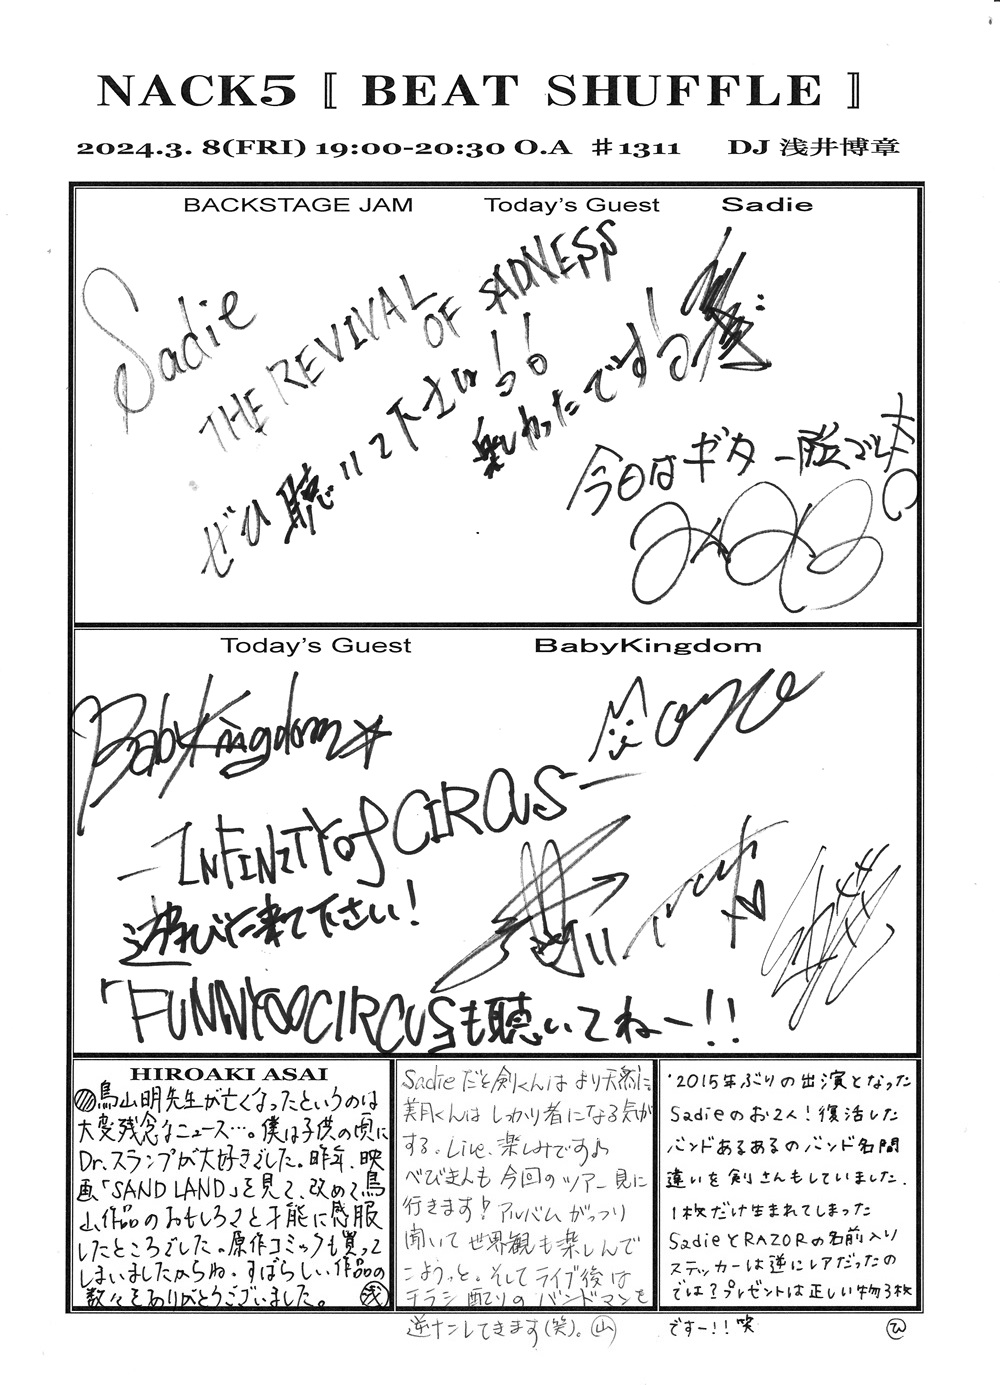 NACK5 〚 BEAT SHUFFLE 〛
2024.3. 8(FRI) 19:00-20:30 O.A ♯1311 DJ 浅井博章
BACKSTAGE JAM Today's Guest Sadie
Sadie
THE REVIVAL
OF SADNESS
ぜひ聴いて下さいっ!!
楽しかったです!
今日はギター一人旅でした
Today's Guest BabyKingdom
BabyKingdom☆
—INFINITY of CIRCUS—
遊びに来て下さい!
「FUNNY∞CIRCUS」も聴いてねー!!
HIROAKI ASAI
鳥山明先生が亡くなったというのは
大変残念なニュース…。僕は子供の頃に
Dr.スランプが大好きでした。昨年、映
画「SAND LAND」を見て、改めて鳥
山作品のおもしろさと才能に感服
したところでした。原作コミックも買って
しまいましたからね。すばらしい作品の
数々をありがとうございました。
Sadieだと剣くんはより天然に
美月くんはしっかり者になる気が
する。Live、楽しみですね
べびきんも今回のツアー見に
行きます! アルバムがっつり
聞いて世界観も楽しんで
こようっと。そしてライブ後は
チラシ配りのバンドマンを
逆ナンしてきます(笑)。(山)
2015年ぶりの出演となった
Sadieのお2人!復活した
バンドあるあるのバンド名間
違いを剣さんもしていました。
1枚だけ生まれてしまった
SadieとRAZORの名前入り
ステッカーは逆にレアだったの
では?プレゼントは正しい物3枚
ですー!!笑 (ひ)